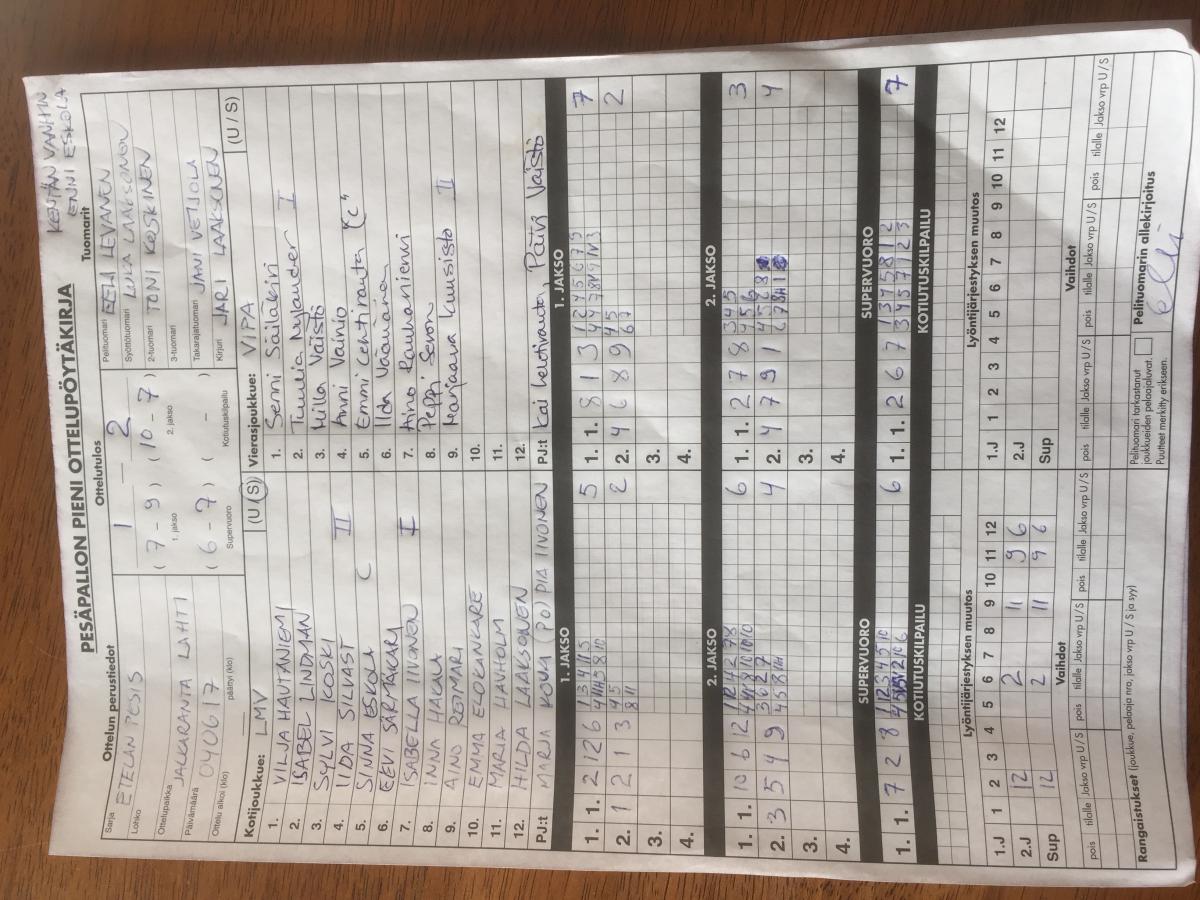 PESÄPALLON PIENI OTTELUPÖYTÄKIRJA
KENTÄN VANHIN
ENNI ESKOLA
Ottelun perustiedot
Sarja ETELÄN PESIS
Lohko
Ottelupaikka JALKARANTA LAHTI
Päivämäärä 040617
Ottelu alkoi (klo) päättyi (klo)
Ottelutulos
1 — 2
( 7 - 9 ) ( 10 - 7 )
1. jakso 2. jakso
( 6 - 7 ) ( - )
Supervuoro Kotiutuskilpailu
Tuomarit
Pelituomari EEMI LEVANEN
Syöttötuomari LUKA LAAKSONEN
2-tuomari TONI KOSKINEN
3-tuomari
Takarajatuomari JANI VETJOLA
Kirjuri JARI LAAKSONEN
Kotijoukkue: LMV (U/S)
1. VILJA HAUTANIEMI
2. ISABEL LINDMAN
3. SYLVI KOSKI
4. IIDA SILVAST II
5. SINNA ESKOLA C
6. EEVI SÄRMÄKARI
7. ISABELLA IIVONEN I
8. INNA HAKALA
9. AINO REMARI
10. EMMA ELOKANKARE
11. MARIA LAVIHOLM
12. HILDA LAAKSONEN
PJ:t MARJA KOVA (PO) PIA IIVONEN
Vierasjoukkue: VIPA (U/S)
1. Senni Säiläkivi
2. Tuulia Nylander I
3. Hilla Väistö
4. Anni Vainio
5. Emmi Lehtiranta "C"
6. Iida Väänänen
7. Aino Rauhaniemi
8. Peppi Sevon
9. Marjaana Kuusisto II
10.
11.
12.
PJ:t Kai Lehtiranta, Päivi Väistö
1. JAKSO 1. JAKSO
1. 1. 2 12 6 5
2. 1 2 1 3 2
3.
4.
1. 1. 8 1 3 7
2. 4 6 8 9 2
3.
4.
2. JAKSO 2. JAKSO
1. 1. 10 6 12 6
2. 3 5 4 9 4
3.
4.
1. 1. 2 7 8 3
2. 4 7 9 1 4
3.
4.
SUPERVUORO SUPERVUORO
1. 1. 7 2 8 6
1. 1. 2 6 7 7
KOTIUTUSKILPAILU KOTIUTUSKILPAILU
Lyöntijärjestyksen muutos
1.J 1 2 3 4 5 6 7 8 9 10 11 12
2.J 12 2 11 9 6
Sup 12 2 11 9 6
Vaihdot
pois tilalle Jakso vrp U/S pois tilalle Jakso vrp U/S pois tilalle Jakso vrp U/S
Lyöntijärjestyksen muutos
1.J 1 2 3 4 5 6 7 8 9 10 11 12
2.J
Sup
Vaihdot
pois tilalle Jakso vrp U/S pois tilalle Jakso vrp U/S pois tilalle Jakso vrp U/S
Rangaistukset (joukkue, pelaaja nro, jakso vrp U/S ja syy)
Pelituomari tarkastanut
joukkueiden pelaajaluvat.
Puutteet merkitty erikseen.
Pelituomarin allekirjoitus